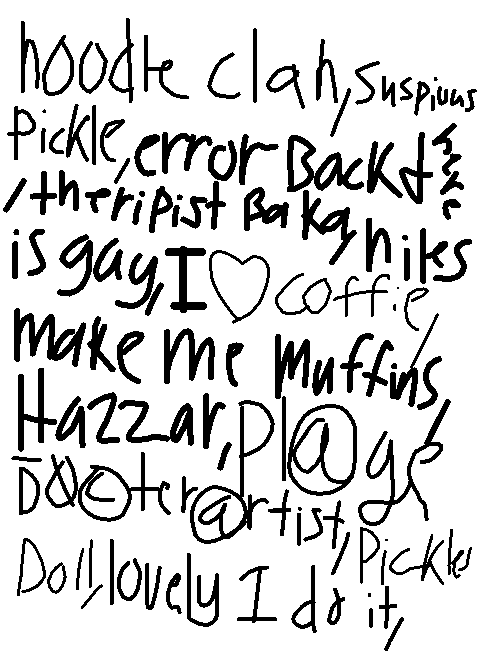 hoodle clan, suspius
Pickle, error Backt
/theripist Baka, niles
is gay, I ♡ coffie,
make me Muffins,
Hazzar, pl@ge
Docter @rtist, Pickles
Doll, lovely I do it,